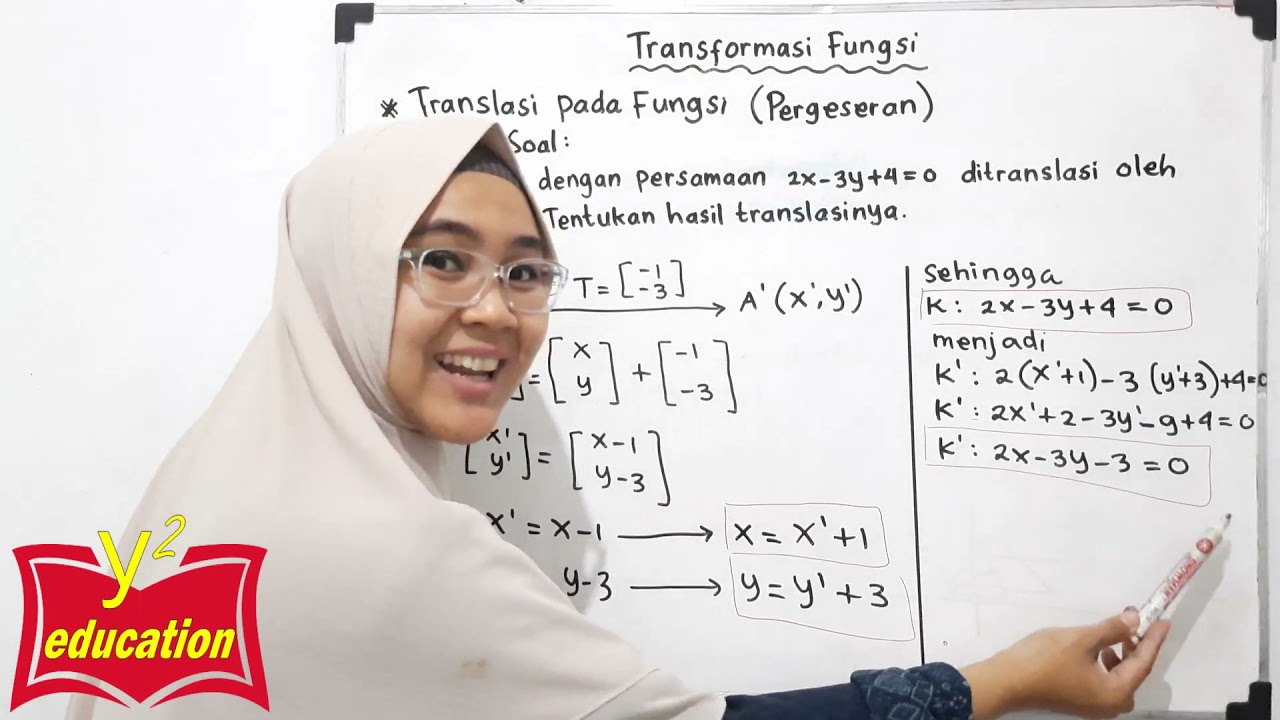 Transformasi Fungsi
* Translasi pada Fungsi (Pergeseran)
Soal:
dengan persamaan 2x-3y+4=0 ditranslasi oleh
Tentukan hasil translasinya.
T = [-1
-3]
A'(x',y')
= [x
y] + [-1
-3]
[x'
y'] = [x-1
y-3]
x' = x-1 → x = x'+1
y-3 → y = y'+3
Sehingga
K: 2x-3y+4=0
menjadi
K': 2(x'+1)-3(y'+3)+4=0
K': 2x'+2-3y'-9+4=0
K': 2x-3y-3=0
y²
education